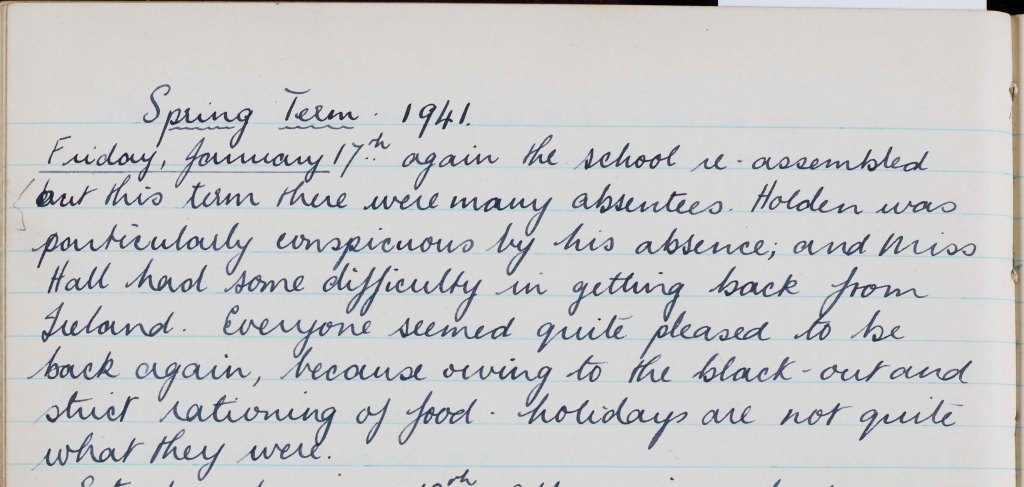 Spring Term. 1941.
Friday, January 17th again the school re-assembled
but this term there were many absentees. Holden was
particularly conspicuous by his absence; and Miss
Hall had some difficulty in getting back from
Ireland. Everyone seemed quite pleased to be
back again, because owing to the black-out and
strict rationing of food - holidays are not quite
what they were.